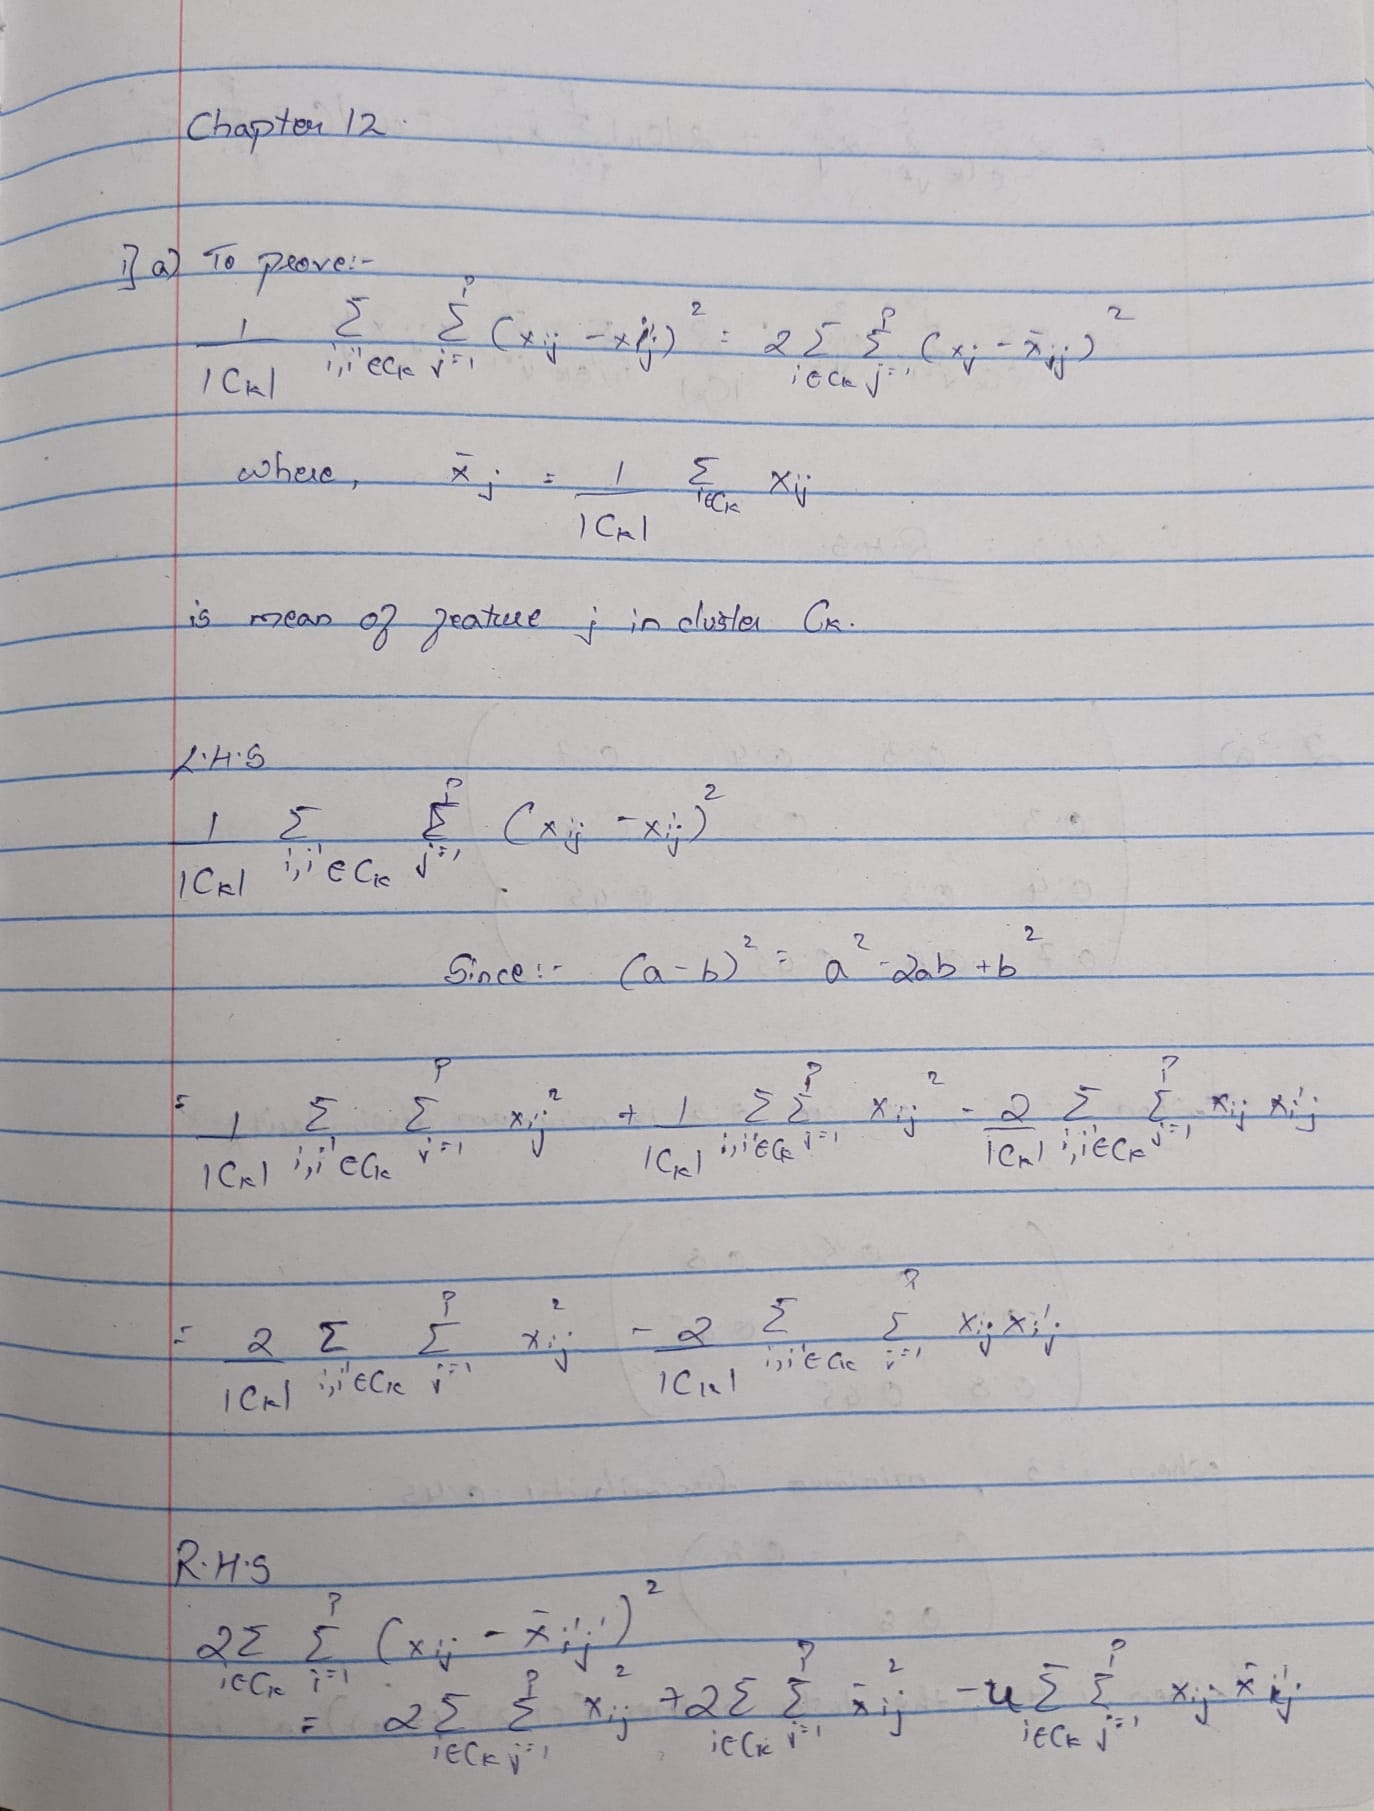 Chapter 12.
1] a) To prove:-
1/|Cₖ| Σ_{i,i'∈Cₖ} Σ_{j=1}^{P} (xᵢⱼ - xᵢ'ⱼ)² = 2 Σ_{i∈Cₖ} Σ_{j=1}^{P} (xᵢⱼ - x̄ᵢⱼ)²
where, x̄ⱼ = 1/|Cₖ| Σ_{i∈Cₖ} xᵢⱼ
is mean of feature j in cluster Cₖ.
L.H.S
1/|Cₖ| Σ_{i,i'∈Cₖ} Σ_{j=1}^{P} (xᵢⱼ - xᵢ'ⱼ)²
Since:- (a-b)² = a² - 2ab + b²
= 1/|Cₖ| Σ_{i,i'∈Cₖ} Σ_{j=1}^{P} xᵢⱼ² + 1/|Cₖ| Σ_{i,i'∈Cₖ} Σ_{j=1}^{P} xᵢⱼ² - 2/|Cₖ| Σ_{i,i'∈Cₖ} Σ_{j=1}^{P} xᵢⱼ xᵢ'ⱼ
= 2/|Cₖ| Σ_{i,i'∈Cₖ} Σ_{j=1}^{P} xᵢⱼ² - 2/|Cₖ| Σ_{i,i'∈Cₖ} Σ_{j=1}^{P} xᵢⱼ xᵢ'ⱼ
R.H.S
2 Σ_{i∈Cₖ} Σ_{j=1}^{P} (xᵢⱼ - x̄ᵢ'ⱼ')²
= 2 Σ_{i∈Cₖ} Σ_{j=1}^{P} xᵢⱼ² + 2 Σ_{i∈Cₖ} Σ_{j=1}^{P} x̄ᵢⱼ² - 4 Σ_{i∈Cₖ} Σ_{j=1}^{P} xᵢⱼ x̄ᵢ'ⱼ